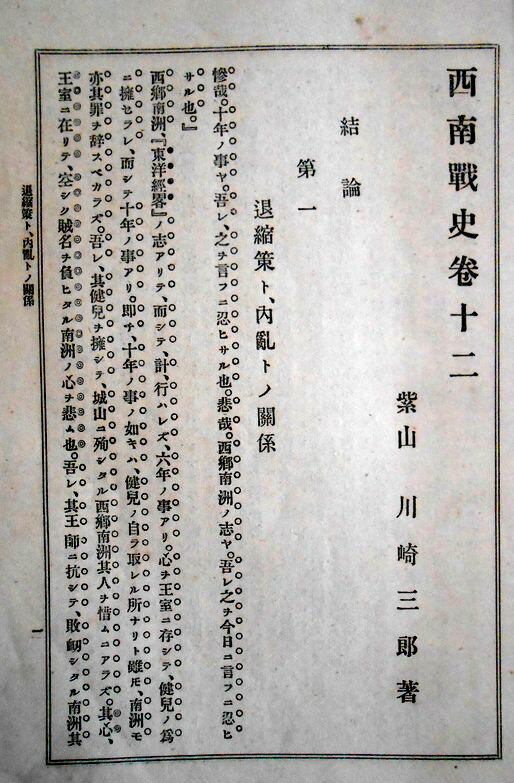 西南戰史卷十二
紫山 川崎三郎著
結論
第一
退縮策ト、內亂トノ關係
慘哉。十年ノ事ヤ。吾レ、之ヲ言フニ忍ヒサル也。悲哉。西鄉南洲ノ志ヤ。吾レ之ヲ今日ニ言フニ忍ヒ
サル也。』
西鄉南洲、『東洋經畧』ノ志アリテ、而シテ、計、行ハレズ、六年ノ事アリ。心ヲ王室ニ存シテ、健兒ノ爲
ニ擁セラレ、而シテ十年ノ事アリ。卽チ、十年ノ事ノ如キハ、健兒ノ自ラ取レル所ナリト雖モ、南洲モ
亦其罪ヲ辞スベカラズ。吾レ、其健兒ヲ擁シテ、城山ニ殉シタル西鄉南洲其人ヲ惜ムニアラズ。其心、
王室ニ在リテ、空シク賊名ヲ負ヒタル南洲ノ心ヲ悲ム也。吾レ、其王師ニ抗シテ、敗衂シタル南洲其
退縮策ト、內亂トノ關係
一